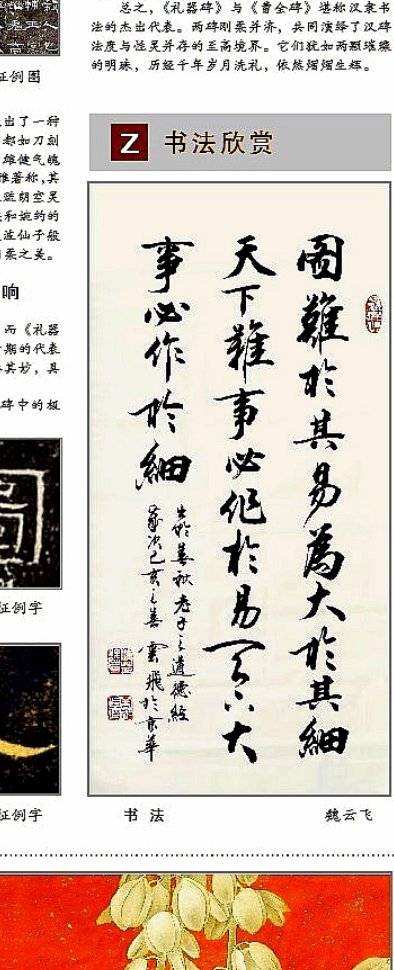 征例图
出了一种
都如刀刻
雄健气魄
雅著称,其
疏朗空灵
和婉约的
波仙子般
柔之美。
响
而《礼器
期的代表
其妙,具
碑中的极
征例字
征例字
总之,《礼器碑》与《曹全碑》堪称汉隶书
法的杰出代表。两碑刚柔并济,共同演绎了汉碑
法度与性灵并存的至高境界。它们犹如两颗璀璨
的明珠,历经千年岁月洗礼,依然熠熠生辉。
Z 书法欣赏
圖難於其易為大於其細
天下難事必作於易天下大
事必作於細
出於春秋老子之道德經
歲次己亥之春雲飛於京華
书 法
魏云飞